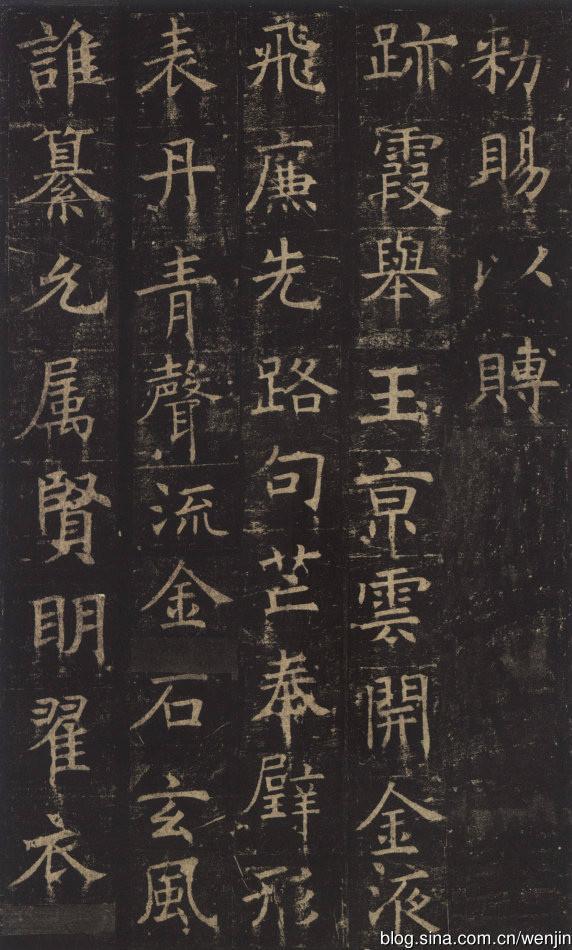 勑賜以賻
跡霞舉玉京雲開金液
飛廉先路句芒奉璧形
表丹青聲流金石玄風
誰纂允属賢明翟衣
blog.sina.com.cn/wenjin